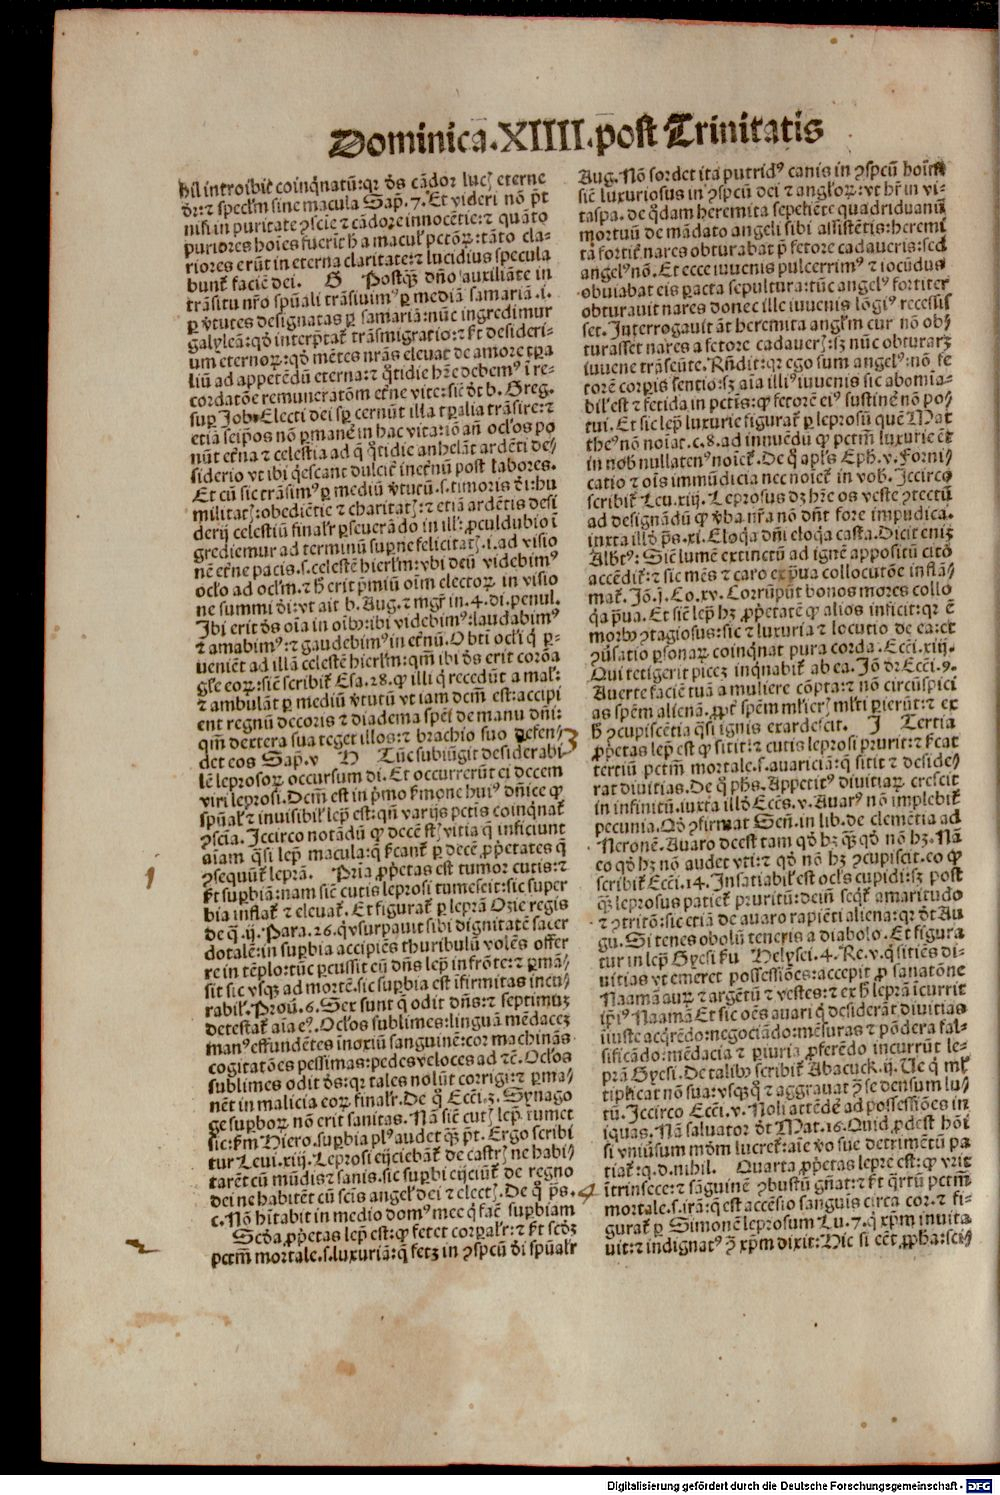 Dominica.XIIII.post Trinitatis
hil introibit coinq̃natũ:qꝛ ðs cãdoꝛ lucꝭ eterne
ðꝛ:⁊ specl̃m sine macula Sap̃.7.Et videri nõ p̃t
nisi in puritate ꝯscĩe ⁊ cãdoꝛe innocẽtie:⁊ quãto
puriores hoĩes fueriñt h̃ a macul̃ pctõꝝ:tãto cla-
riores erũt in eterna claritate:⁊ lucidius specula
bunt̃ faciẽ dei. G Postqꝫ̃ dño auxiliãte in
trãsitu nr̃o sp̃uali trãsiuimꝰ ꝑ mediã samariã.i.
ꝑ ṽtutes designatas ꝑ samariã:nũc ingredimur
galyleã:qð interp̃tat̃ trãsmigratio:⁊ s̃t desideri-
um eternoꝝ:qð mẽtes nr̃as eleuat de amore tꝑa
liũ ad appetẽdũ eterna:⁊ q̃tidie hr̃e debemꝰ ĩ re-
cordatõe remuneratõm et̃ne vite:sic̃ ðt b. Greg.
suꝑ Job.Electi dei sꝑ cernũt illa tꝑalia trãsire:⁊
etiã seip̃os nõ ꝑmanẽ in hac vita:iõ añ ocl̃os po
nũt et̃na ⁊ celestia ad q̃ q̃tidie anhelãt ardẽti de-
siderio vt ibi q̃escant dulcit̃ inet̃nũ post labores.
Et cũ sic trãsimꝰ ꝑ mediũ ṽtutũ.s.timoris ði:hu
militatꝭ:obediẽtie ⁊ charitatꝭ:⁊ etiã ardẽtis desi
derij celestiũ finalr̃ ꝑseuerãdo in ill̃:ꝓculdubio ĩ
grediemur ad terminũ suꝑne felicitatꝭ.i.ad visio
nẽ et̃ne pacis.s.celestẽ hierl̃m:vbi deũ videbimꝰ
ocl̃o ad ocl̃m.⁊ h̃ erit p̃miũ oĩm electoꝝ in visio
ne summi ði:vt ait b.Aug.⁊ mgr̃ in.4.di.penul.
Ibi erit ðs oĩa in oĩbꝰ:ibi videbimꝰ:laudabimꝰ
⁊ amabimꝰ:⁊ gaudebimꝰ in et̃nũ.O bt̃i ocl̃i q̃ ꝑ-
ueniẽt ad illã celestẽ hierl̃m:qm̃ ibi ðs erit corõa
gl̃e eoꝝ:sic̃ scribit̃ Esa.28.ꝙ illi q̃ recedũt a mal̃:
⁊ ambulãt ꝑ mediũ ṽtutũ vt iam dcm̃ est:accipi
ent regnũ decoris ⁊ diadema sp̃ei de manu dñi:
qm̃ dextera sua teget illos:⁊ brachio suo defen⸗
det eos Sap̃.v H Tũc subiũgit desiderabi
lẽ leprosoꝝ occursum di.Et occurrerũt ei decem
viri leprosi.Dcm̃ est in p̃mo s̃mone huiꝰ dñice ꝙ
sp̃ual̃ ⁊ inuisibil̃ lep̃ est:qñ varijs pctĩs coinq̃nat̃
ꝯscĩa.Iccirco notãdũ ꝙ decẽ sꝉ vitia q̃ inficiunt
aĩam q̃si lep̃ macula:q̃ s̃cant̃ ꝑ decẽ ꝓp̃etates q̃
ꝯsequũt̃ leprã. Pria ꝓp̃etas est tumor cutis:⁊
s̃t suꝑbiã:nam sic̃ cutis leprosi tumescit:sic super
bia inflat̃ ⁊ eleuat̃.Et figurat̃ ꝑ leprã Ozie regis
de q̃.ij.Para.26.q̃ vsurpauit sibi dignitatẽ sacer
dotalẽ:in suꝑbia accipiẽs thuribulũ volẽs offer
re in tẽplo:tũc ꝑcussit eũ dñs lep̃ in frõte:⁊ ꝑmã⸗
sit sic vsqꝫ ad mortẽ.sic suꝑbia est ĩfirmitas incu⸗
rabil̃.Proũ.6.Sex sunt q̃ odit dñs:⁊ septimuꝫ
detestat̃ aĩa eꝰ.Ocl̃os sublimes:linguã mẽdaceꝫ
manꝰ effundẽtes ĩnoxiũ sanguinẽ:cor machinãs
cogitatões pessimas:pedes veloces ad ⁊ẽ.Ocl̃os
sublimes odit ðs:qꝛ tales nolũt corrigi:⁊ ꝑma⸗
nẽt in malicia eoꝝ finalr̃.De q̃ Ecc̃i.3.Synago
ge suꝑboꝝ nõ erit sanitas.Nã sic̃ cutꝭ lep̃ tumet
sic:s̃m Hiero.suꝑbia plꝰ audet qꝫ̃ p̃t.Ergo scribi
tur Leui.xiij.Leprosi eijciebãt̃ de castrꝭ ne habi⸗
tarẽt cũ mũdis ⁊ sanis.sic suꝑbi eijciũt̃ de regno
dei ne habitẽt cũ scĩs angel̃ dei ⁊ electꝭ.De q̃ p̃s.
c.Nõ hĩtabit in medio domꝰ mee q̃ facĩt suꝑbiam
Scða ꝓp̃etas lep̃ est:ꝙ fetet corꝑalr̃:⁊ s̃t scðꝫ
pctm̃ mortale.s.luxuriã:q̃ fetꝫ in ꝯspcũ ði sp̃ualr̃
Aug.Nõ sordet ita putridꝰ canis in ꝯspcũ hoĩm
sic̃ luxuriosus in ꝯspcũ dei ⁊ angl̃oꝝ:vt hr̃ in vi-
taspa.de q̃dam heremita sepeliẽte quadriduanũ
mortuũ de mãdato angeli sibi assistẽtis:heremi
tã fortit̃ nares obturabat p̃ fetore cadaueris:sed
angelꝰ nõ.Et ecce iuuenis pulcerrimꝰ ⁊ iocũdus
obuiabat eis ꝑacta sepultura:tũc angelꝰ fortiter
obturauit nares donec ille iuuenis lõgiꝰ recessis
set.Interrogauit ãt heremita angl̃m cur nõ ob⸗
turasset nares a fetore cadauerꝭ:sꝫ nũc obturaꝝ
iuuene trãseũte.Rñdit:qꝛ ego sum angelꝰ:nõ fe
torẽ corꝑis sentio:sꝫ aĩa illiꝰ iuuenis sic abomĩa-
bil̃ est ⁊ fetida in pctĩs:ꝙ fetorẽ eiꝰ sustinẽ nõ po⸗
tui.Et sic lep̃ luxurie figurat̃ ꝑ leprosũ quẽ Mat
theꝰ nõ noĩat.c.8.ad innuẽdũ ꝙ pctm̃ luxurie ẽt
in nob̃ nullatenꝰ noĩet̃.De q̃ apl̃s Eph.v.Forni
catio ⁊ oĩs immũdicia nec noĩet̃ in vob̃.Iccirco
scribit̃ Leu.xiij.Leprosus dꝫ hr̃e os veste ꝯtectũ
ad designãdũ ꝙ ṽba nr̃a nõ dñt fore impudica.
iuxta illð p̃s.xi.Eloq̃a dñi eloq̃a casta.Dicit eniꝫ
Albtꝰ:Sic̃ lumẽ extinctũ ad ignẽ appositũ cito
accẽdit̃:⁊ sic mẽs ⁊ caro ex p̃ua collocutõe inflã⸗
mat̃.Jõ.j.Co.xv.Corrũpũt bonos mores collo
q̃a p̃ua.Et sic̃ lep̃ hꝫ ꝓp̃etatẽ ꝙ alios inficit:qꝛ ẽ
morbꝰ ꝯtagiosus:sic ⁊ luxuria ⁊ locutio de ea:et
ꝯũsatio ꝑsonaꝝ coinq̃nat pura corda.Ecc̃i.xiij.
Qui tetigerit piceꝫ inq̃nabit̃ ab ea.Jõ dꝛ Ecc̃i.9.
Auerte faciẽ tuã a muliere cõpta:⁊ nõ circũspici
as sp̃em alienã.ꝓpt̃ sp̃em ml̃ierꝭ ml̃ti ꝑierũt:⁊ ex
h̃ ꝯcupiscẽtia q̃si ignis exardescit. J Tertia
ꝓp̃etas lep̃ est ꝙ sitit:⁊ cutis leprosi prurit:⁊ s̃cat
tertiũ pctm̃ mortale.s.auariciã:q̃ sitit ⁊ deside⸗
rat diuitias.De q̃ ph̃s.Appetitꝰ diuitiaꝝ crescit
in infinitũ.iuxta illð Ecc̃s.v.Auarꝰ nõ implebit̃
pecunia.Qð ꝯfirmat Señ.in lib.de clemẽtia ad
Neronẽ.Auaro deest tam qð hꝫ qꝫ̃ qð nõ hꝫ.Nã
eo qð hꝫ nõ audet vti:⁊ qð nõ hꝫ ꝯcupiscit.eo ꝙ
scribit̃ Ecc̃i.14.Insatiabil̃ est ocl̃s cupidi:sꝫ post
qꝫ̃ leprosus patiet̃ pruritũ:deĩñ seq̃t̃ amaritudo
⁊ ꝯtritõ:sic etiã de auaro rapiẽti aliena:qꝛ ðt Au
gu.Si tenes obolũ teneris a diabolo.Et figura
tur in lep̃ Gyesi s̃u Helysei.4.Re.v.q̃ sitiẽs di⸗
uitias vt emeret possessiões:accepit ꝓ sanatõne
Naamã auꝝ ⁊ argẽtũ ⁊ vestes:⁊ ex h̃ leprã ĩcurrit
ip̃iꝰ Naamã Et sic oẽs auari q̃ desiderãt diuitias
iniuste acq̃rẽdo:negociãdo:mẽsuras ⁊ põdera fal⸗
sificãdo:mẽdacia ⁊ ꝑiuria ꝓferẽdo incurrũt le⸗
prã Gyesi.De talibꝰ scribit̃ Abacuck.ij.Ue q̃ ml̃
tiplicat nõ sua:vsqꝫ q̃ ⁊ aggrauat ꝯ̃ se densum lu⸗
tũ.Iccirco Ecc̃i.v.Noli attẽdẽ ad possessiões in
iquas.Nã saluator ðt Mat.16.Quid ꝓdest hõi
si vniũsum mðm lucret̃:aĩe ṽo sue detrimẽtũ pa
tiat̃:q.d.nihil. Quarta ꝓp̃etas lepre est:ꝙ vrit
ĩtrinsece:⁊ sãguinẽ ꝯbustũ gñat:⁊ s̃t q̃rtũ pctm̃
mortale.s.irã:q̃ est accẽsio sanguis circa cor.⁊ fi⸗
gurat̃ ꝑ Simonẽ leprosum Lu.7.q̃ xp̃m inuita
uit:⁊ indignatꝰ ꝯ̃ xp̃m dixit:Hic si eẽt ꝓph̃a:sci⸗
3
1
2
4
Digitalisierung gefördert durch die Deutsche Forschungsgemeinschaft - DFG